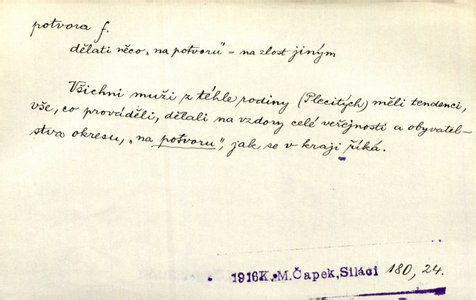 potvora f.
dělati něco „na potvoru" - na zlost jiným
Všichni muži z téhle rodiny (Plecitých) měli tendenci,
vše, co prováděli, dělali na vzdory celé veřejnosti a obyvatel-
stva okresu, „na potvoru", jak se v kraji říká.
1916K.M.Čapek, Siláci 180, 24.